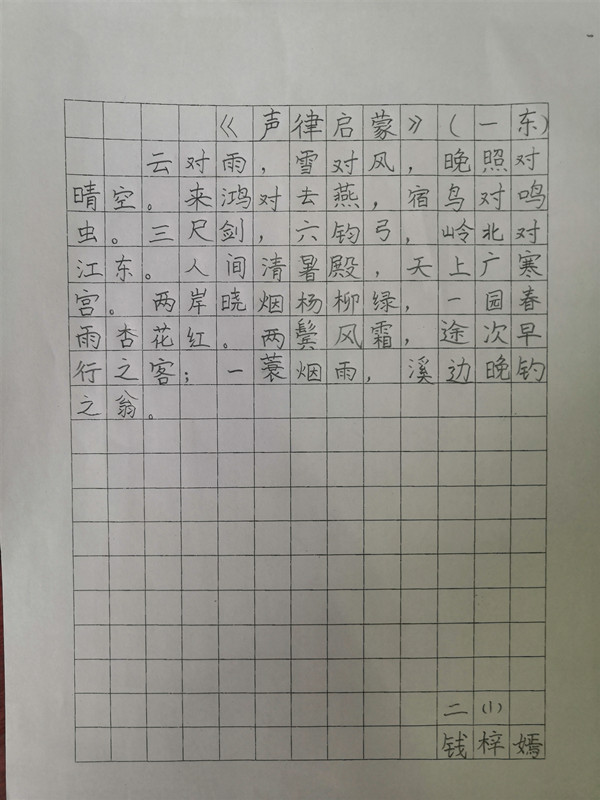 《声律启蒙》(一东)
云对雨，雪对风，晚照对
晴空。来鸿对去燕，宿鸟对鸣
虫。三尺剑，六钧弓，岭北对
江东。人间清暑殿，天上广寒
宫。两岸晓烟杨柳绿，一园春
雨杏花红。两鬓风霜，途次早
行之客；一蓑烟雨，溪边晚钓
之翁。
二(1)
钱梓嫣